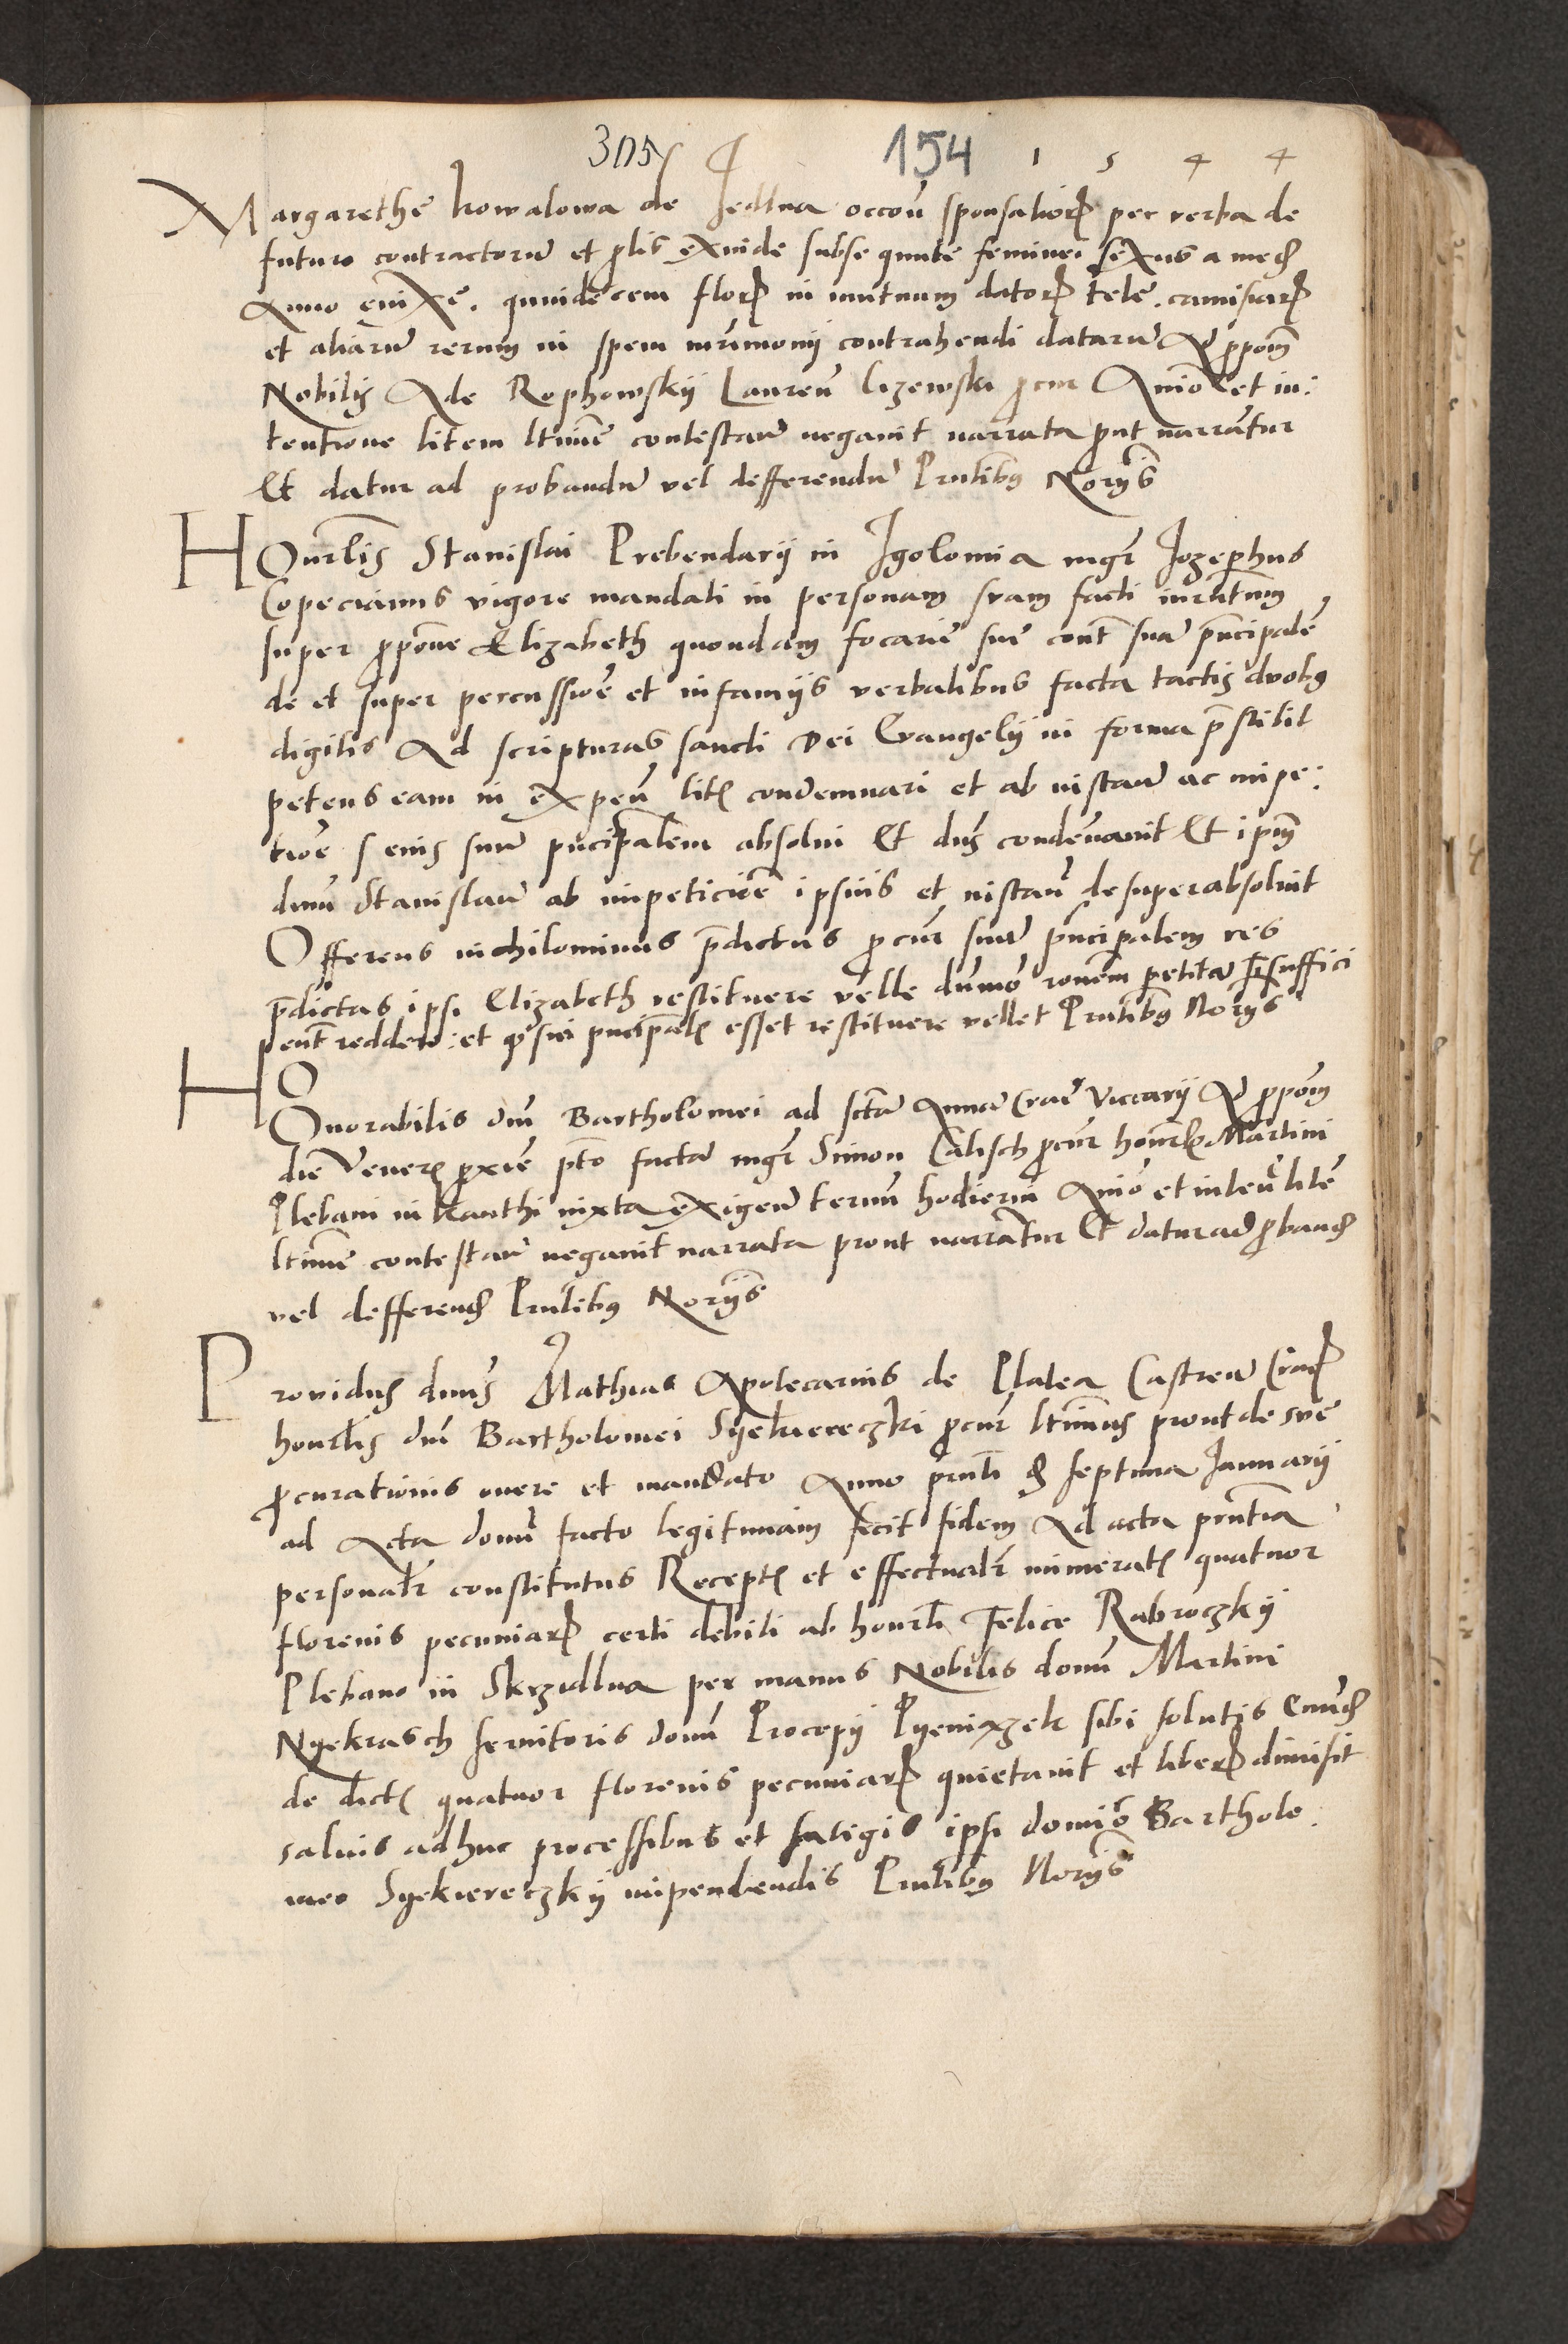 305 154 1 5 4 4
Margarethe kowalowa de Jedlna occoñ sponsalior per verba de
futuro contractorũ et plis exinde subse qunte feminei sexus a med
Anno enixe. quindecem flor in mutuum dator tele. camisiar
et aliarũ rerum in spem mrimonij contrahendi datarũ Ad ppom̃
Nobilis Ade Rophowskij Laureñ lizewski pcur Anio et in:
tentione litem ltime contestañ negavit narrata put narrantur
Et datur ad probandũ vel defferendũ Prntibus Norijs
HOnrlis Stanislai Prebendarij in Jgolomia mgr Jozephus
Copecianus vigore mandati in personam suam facti iurantum
super ppone Elizabeth quondam focarie sue cont suũ principale
de et super percussioe et infamijs verbalibus facta tactis duobus
digitis Ad scripturas sancti Dei Evangelij in forma prestitit
petens eam in expeñ lit condemnari et ab instañ ac impe:
tioe eius suũ pncipalem absolui Et dns condenavit Et ipm̃
dnum Stanislaũ ab impeticioe ipsius et instañ desuper absoluit
Offerens nichilominus predictus pcur suũ principalem res
predictas ipsi Elizabeth restituere velle dumo ronem petita suffici
pent reddere: et q sui pncipal esset restituere vellet Prntibus Norijs
HO
Onorabilis dni Bartholomei ad sctam Annã Crac Viccarij Ad ppom̃
die Vener pxie pto facta mgr Simon Calisch pcur honrl Martini
Plebani in kanthi iuxta exigeñ termi hodierni Anio et inteñ lite
ltime contestañ negavit narrata prout narrantur Et datur ad pband
vel defferend Prntibus Norijs
Providus dnus Mathias Apotecarius de Platea Castreñ Crac
honrlis dni Bartholomei Syekiereczki pcur ltimus prout de sue
pcurationis onere et mandato Anno prnti d septima Januarij
ad Acta domi facto legitimam fecit fidem Ad acta prntia
personalr constitutus Recept et effectualr numerat quatuor
florenis pecuniar certi debiti ab honrli Felice Rabroczkij
Plebano in Skrzidlna per manus Nobilis domi Martini
Nyekrasch servitoris domi Procopij Pyeniazek sibi solutis Eund
de dict quatuor florenis pecuniar quietavit et liber dimisit
salvis adhuc processibus et fatigis ipsi domio Bartholo.
meo Syekiereczkij impendendis Prntibus Norijs